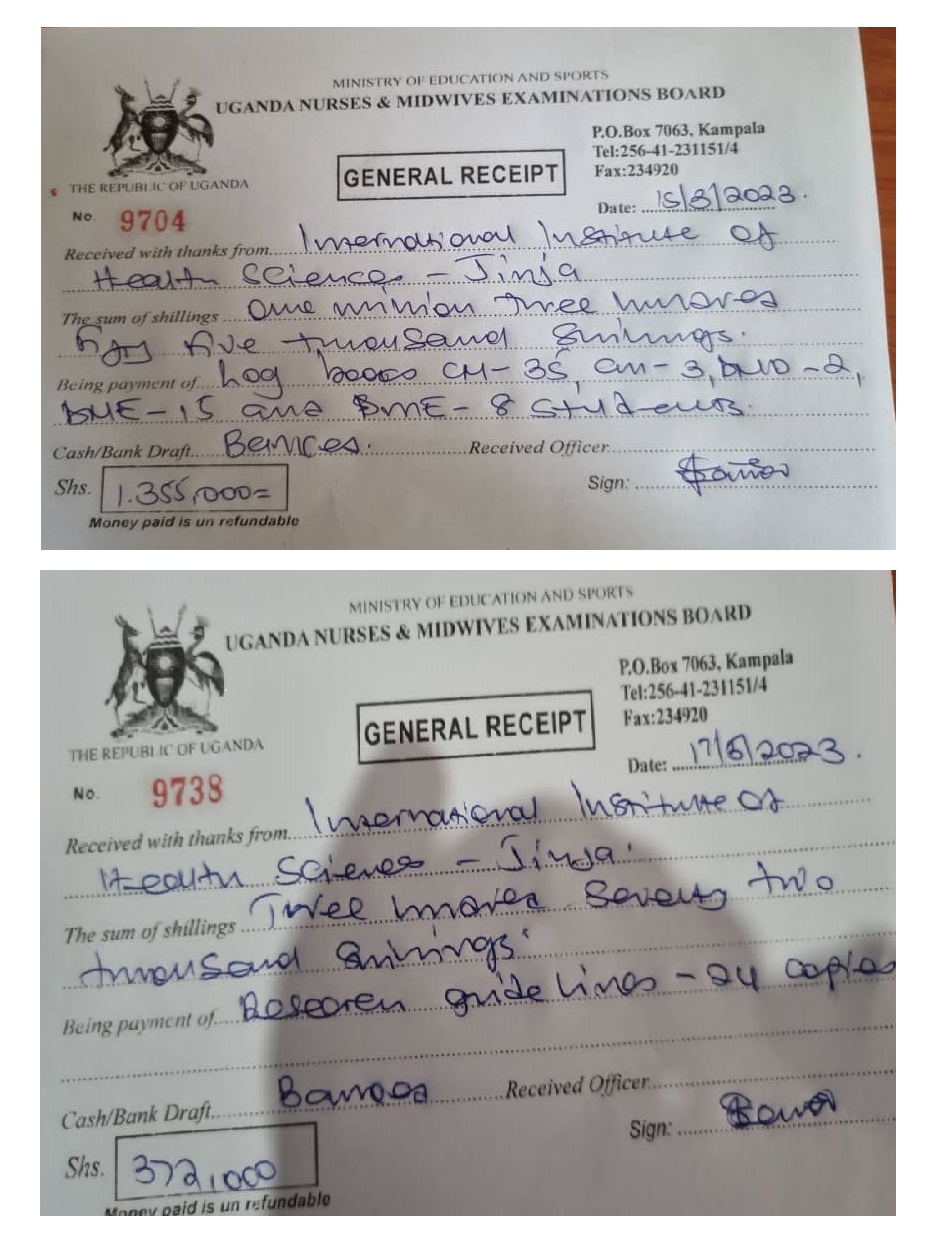 MINISTRY OF EDUCATION AND SPORTS
UGANDA NURSES & MIDWIVES EXAMINATIONS BOARD
P.O.Box 7063, Kampala
Tel:256-41-231151/4
Fax:234920
GENERAL RECEIPT
THE REPUBLIC OF UGANDA
Date: 15/8/2023.
No. 9704
Received with thanks from International Institute of
Health Sciences - Jinja
The sum of shillings One million three hundred
fifty five thousand shillings.
Being payment of log books CM-35, CN-3, DMD-2,
DME-15 and BME-8 students.
Cash/Bank Draft Received Officer
Shs. 1.355,000= Sign:
Money paid is un refundable
MINISTRY OF EDUCATION AND SPORTS
UGANDA NURSES & MIDWIVES EXAMINATIONS BOARD
P.O.Box 7063, Kampala
Tel:256-41-231151/4
Fax:234920
GENERAL RECEIPT
THE REPUBLIC OF UGANDA
Date: 17/8/2023.
No. 9738
Received with thanks from International Institute of
Health Science - Jinja.
The sum of shillings Three hundred Seventy two
thousand shillings.
Being payment of Research guide lines - 24 copies
Cash/Bank Draft Received Officer
Sign:
Shs. 372,000
Money paid is un refundable